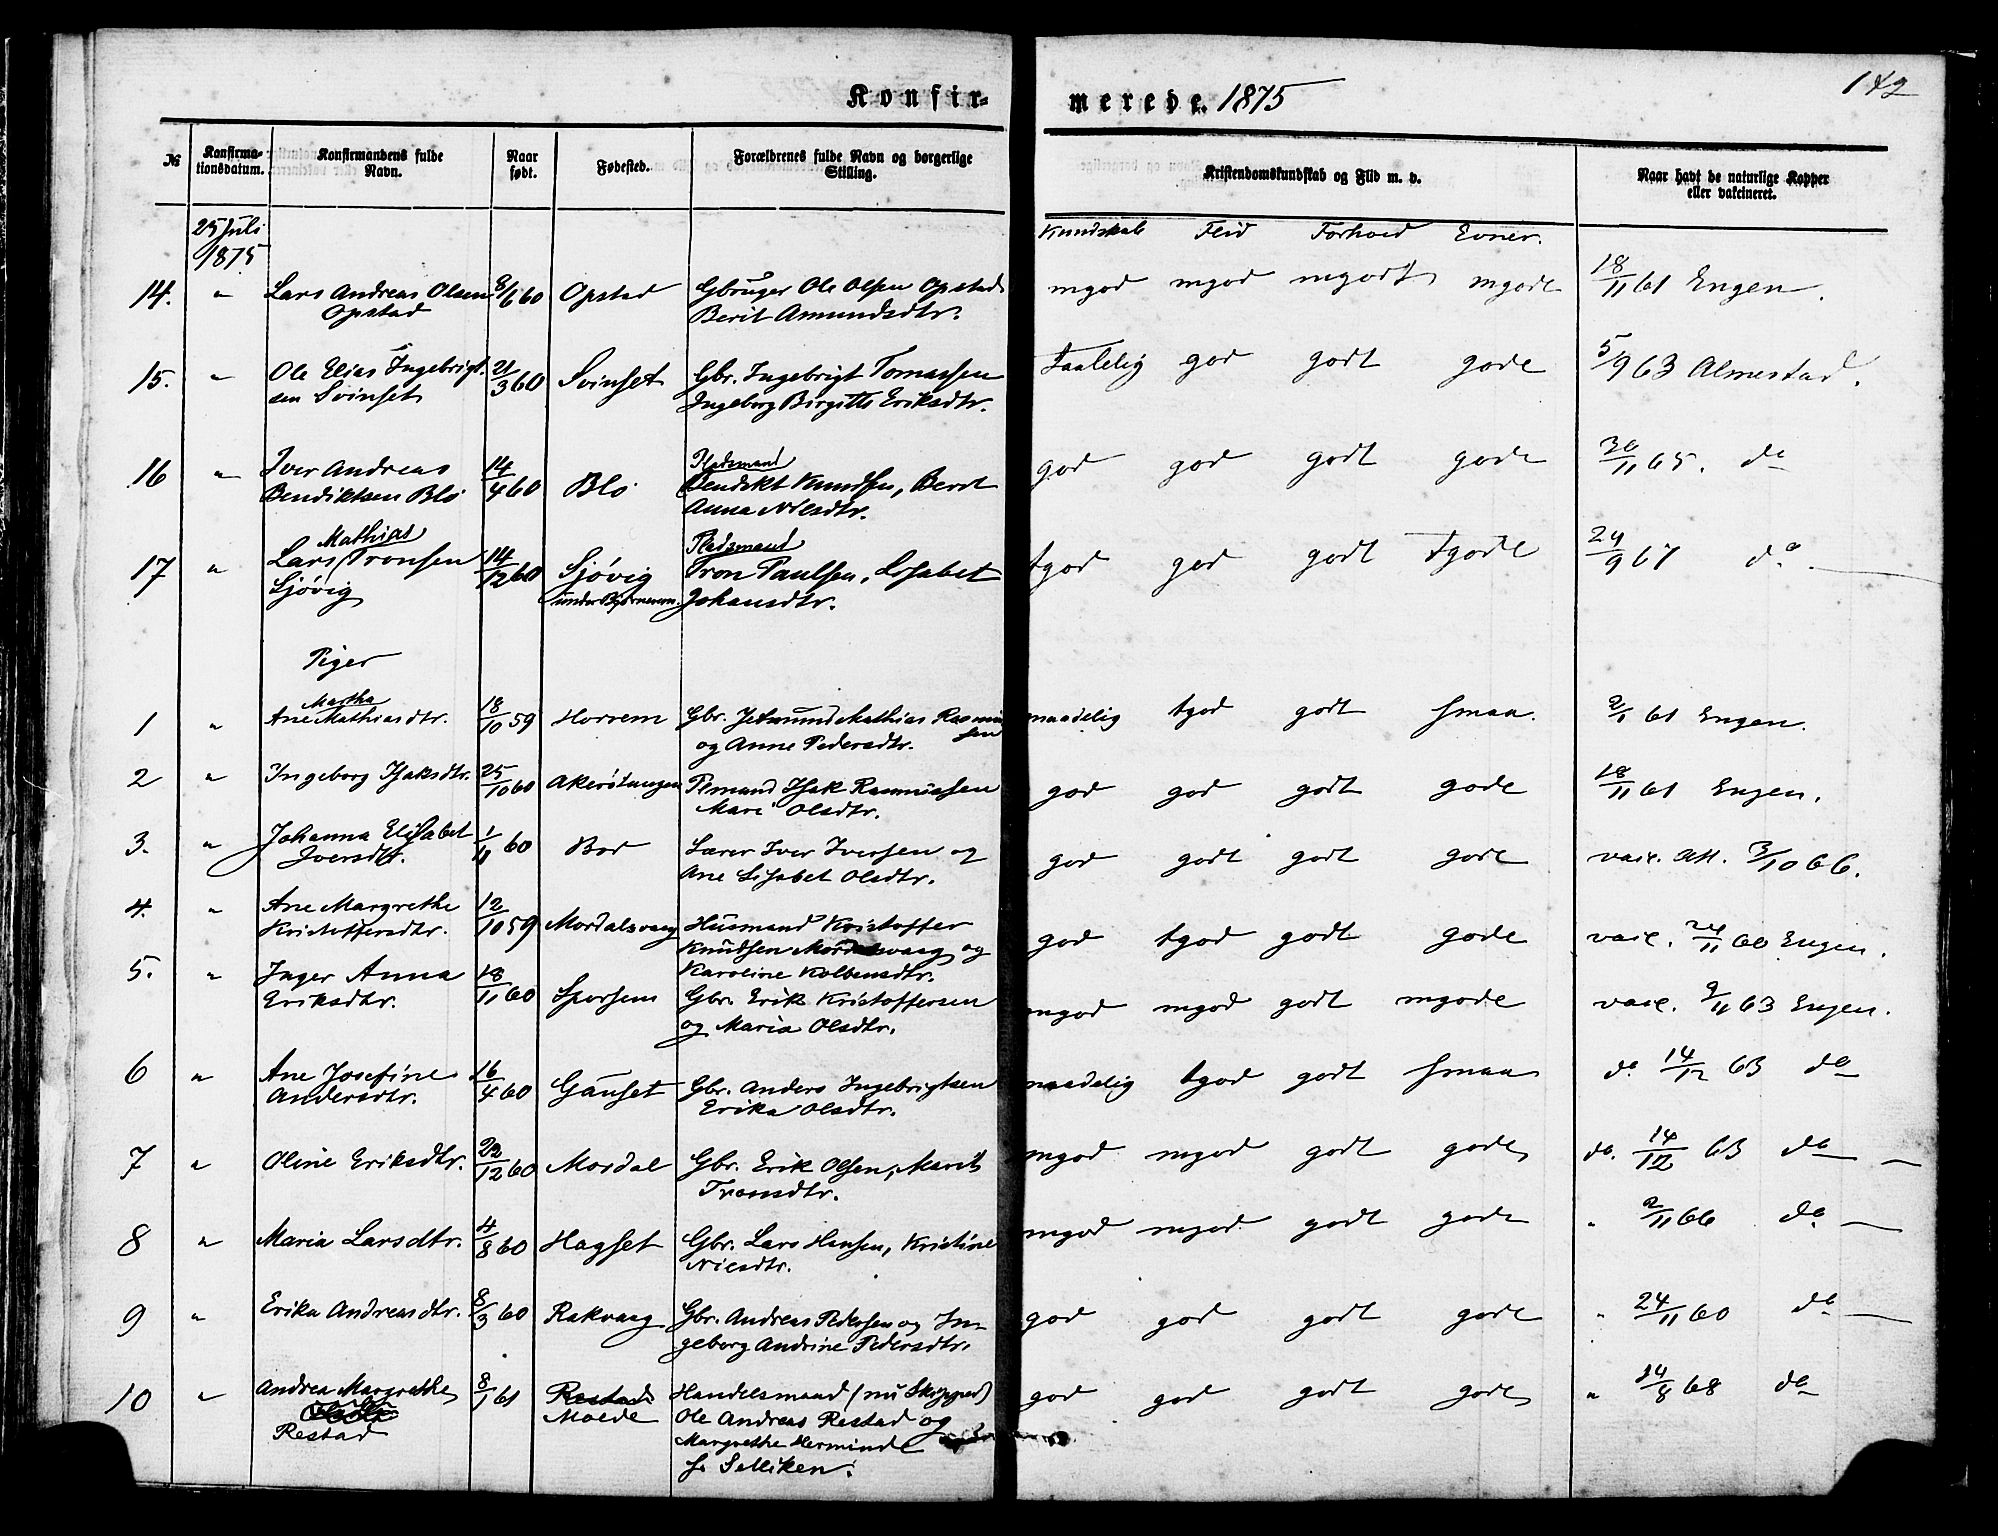 Konfirmerede. 1875
142
№ Konfirmationsdatum. Konfirmandens fulde Navn. Naar født. Fødested. Forældrenes fulde Navn og borgerlige Stilling. Kristendomskundskab og Flid m. v. Naar havt de naturlige Kopper eller vakcineret.
25 Juli
1875
Kundskab Flid Forhold Evner.
14. " Lars Andreas Olsen 8/6 60 Opstad Gbruger Ole Olsen Opstad mgod mgod mgodt mgode 18/11 61 Engen.
Opstad Berit Amundsdtr.
15. " Ole Elias Ingebrigt- 21/3 60 Svinset Gbr. Ingebrigt Tomassen taalelig god godt gode 5/9 63 Almestad.
sen Svinset Ingeborg Birgitte Eriksdtr.
Pladsmand
16 " Iver Andreas 14/4 60 Blø Bendikt Knudsen, Berit god god godt gode 30/11 65. do
Bendiktsen Blø Anna Nilsdtr.
Mathias Pladsmand
17 " Lars Tronsen 14/12 60 Sjøvig Tron Paulsen, Lisabet tgod god godt tgode 24/9 67 do
Sjøvig under Bjørnerem. Johansdtr.
Piger
Martha
1 " Ane Mathiasdtr. 18/10 59 Horrem Gbr. Jetmund Mathias Rasmus maadelig tgod godt smaa. 2/1 61 Engen.
sen
og Anne Pedersdtr.
2 " Ingeborg Isaksdtr. 25/10 60 Akerøtangen Pmand Isak Rasmussen god god godt gode 18/11 61 Engen.
Mari Olsdtr.
3. " Johanna Elisabet 1/11 60 Bor Lærer Iver Iversen og god godt godt gode vacc. att. 3/10 66.
Iversdtr. Ane Lisabet Olsdtr.
4. " Ane Margrethe 12/10 59 Mordalsvaag Husmand Kristoffer god tgod godt gode vacc. 24/11 60 Engen.
Kristoffersdtr. Knudsen Mordalsvaag og
Karoline Kolbensdtr.
5. " Inger Anna 18/11 60 Sporsem Gbr. Erik Kristoffersen mgod mgod godt mgode vacc. 2/11 63 Engen.
Eriksdtr. og Maria Olsdtr.
6 " Ane Josefine 16/4 60 Gauset Gbr. Anders Ingebrigtsen maadelig tgod godt smaa do 14/12 63 do
Andersdtr. Erika Olsdtr.
7 " Oline Eriksdtr. 22/12 60 Mordal Gbr. Erik Olsen, Marit mgod mgod godt gode do. 14/12 63 do
Tronsdtr.
8 " Maria Larsdtr. 4/8 60 Hagset Gbr. Lars Hansen, Kristine mgod mgod godt gode " 2/11 66 do
Nilsdtr.
9 " Erika Andreasdtr. 8/3 60 Rakvaag Gbr. Andreas Pedersen og In- god god godt gode " 24/11 60 do
geborg Andrine Pedersdtr.
10 " Andrea Margrethe 8/1 61 Restad Handelsmand (nu Skipper) god god godt gode " 24/8 68 do
Restad Molde Ole Andreas Restad og
Margrethe Hermine
f. Selliken.